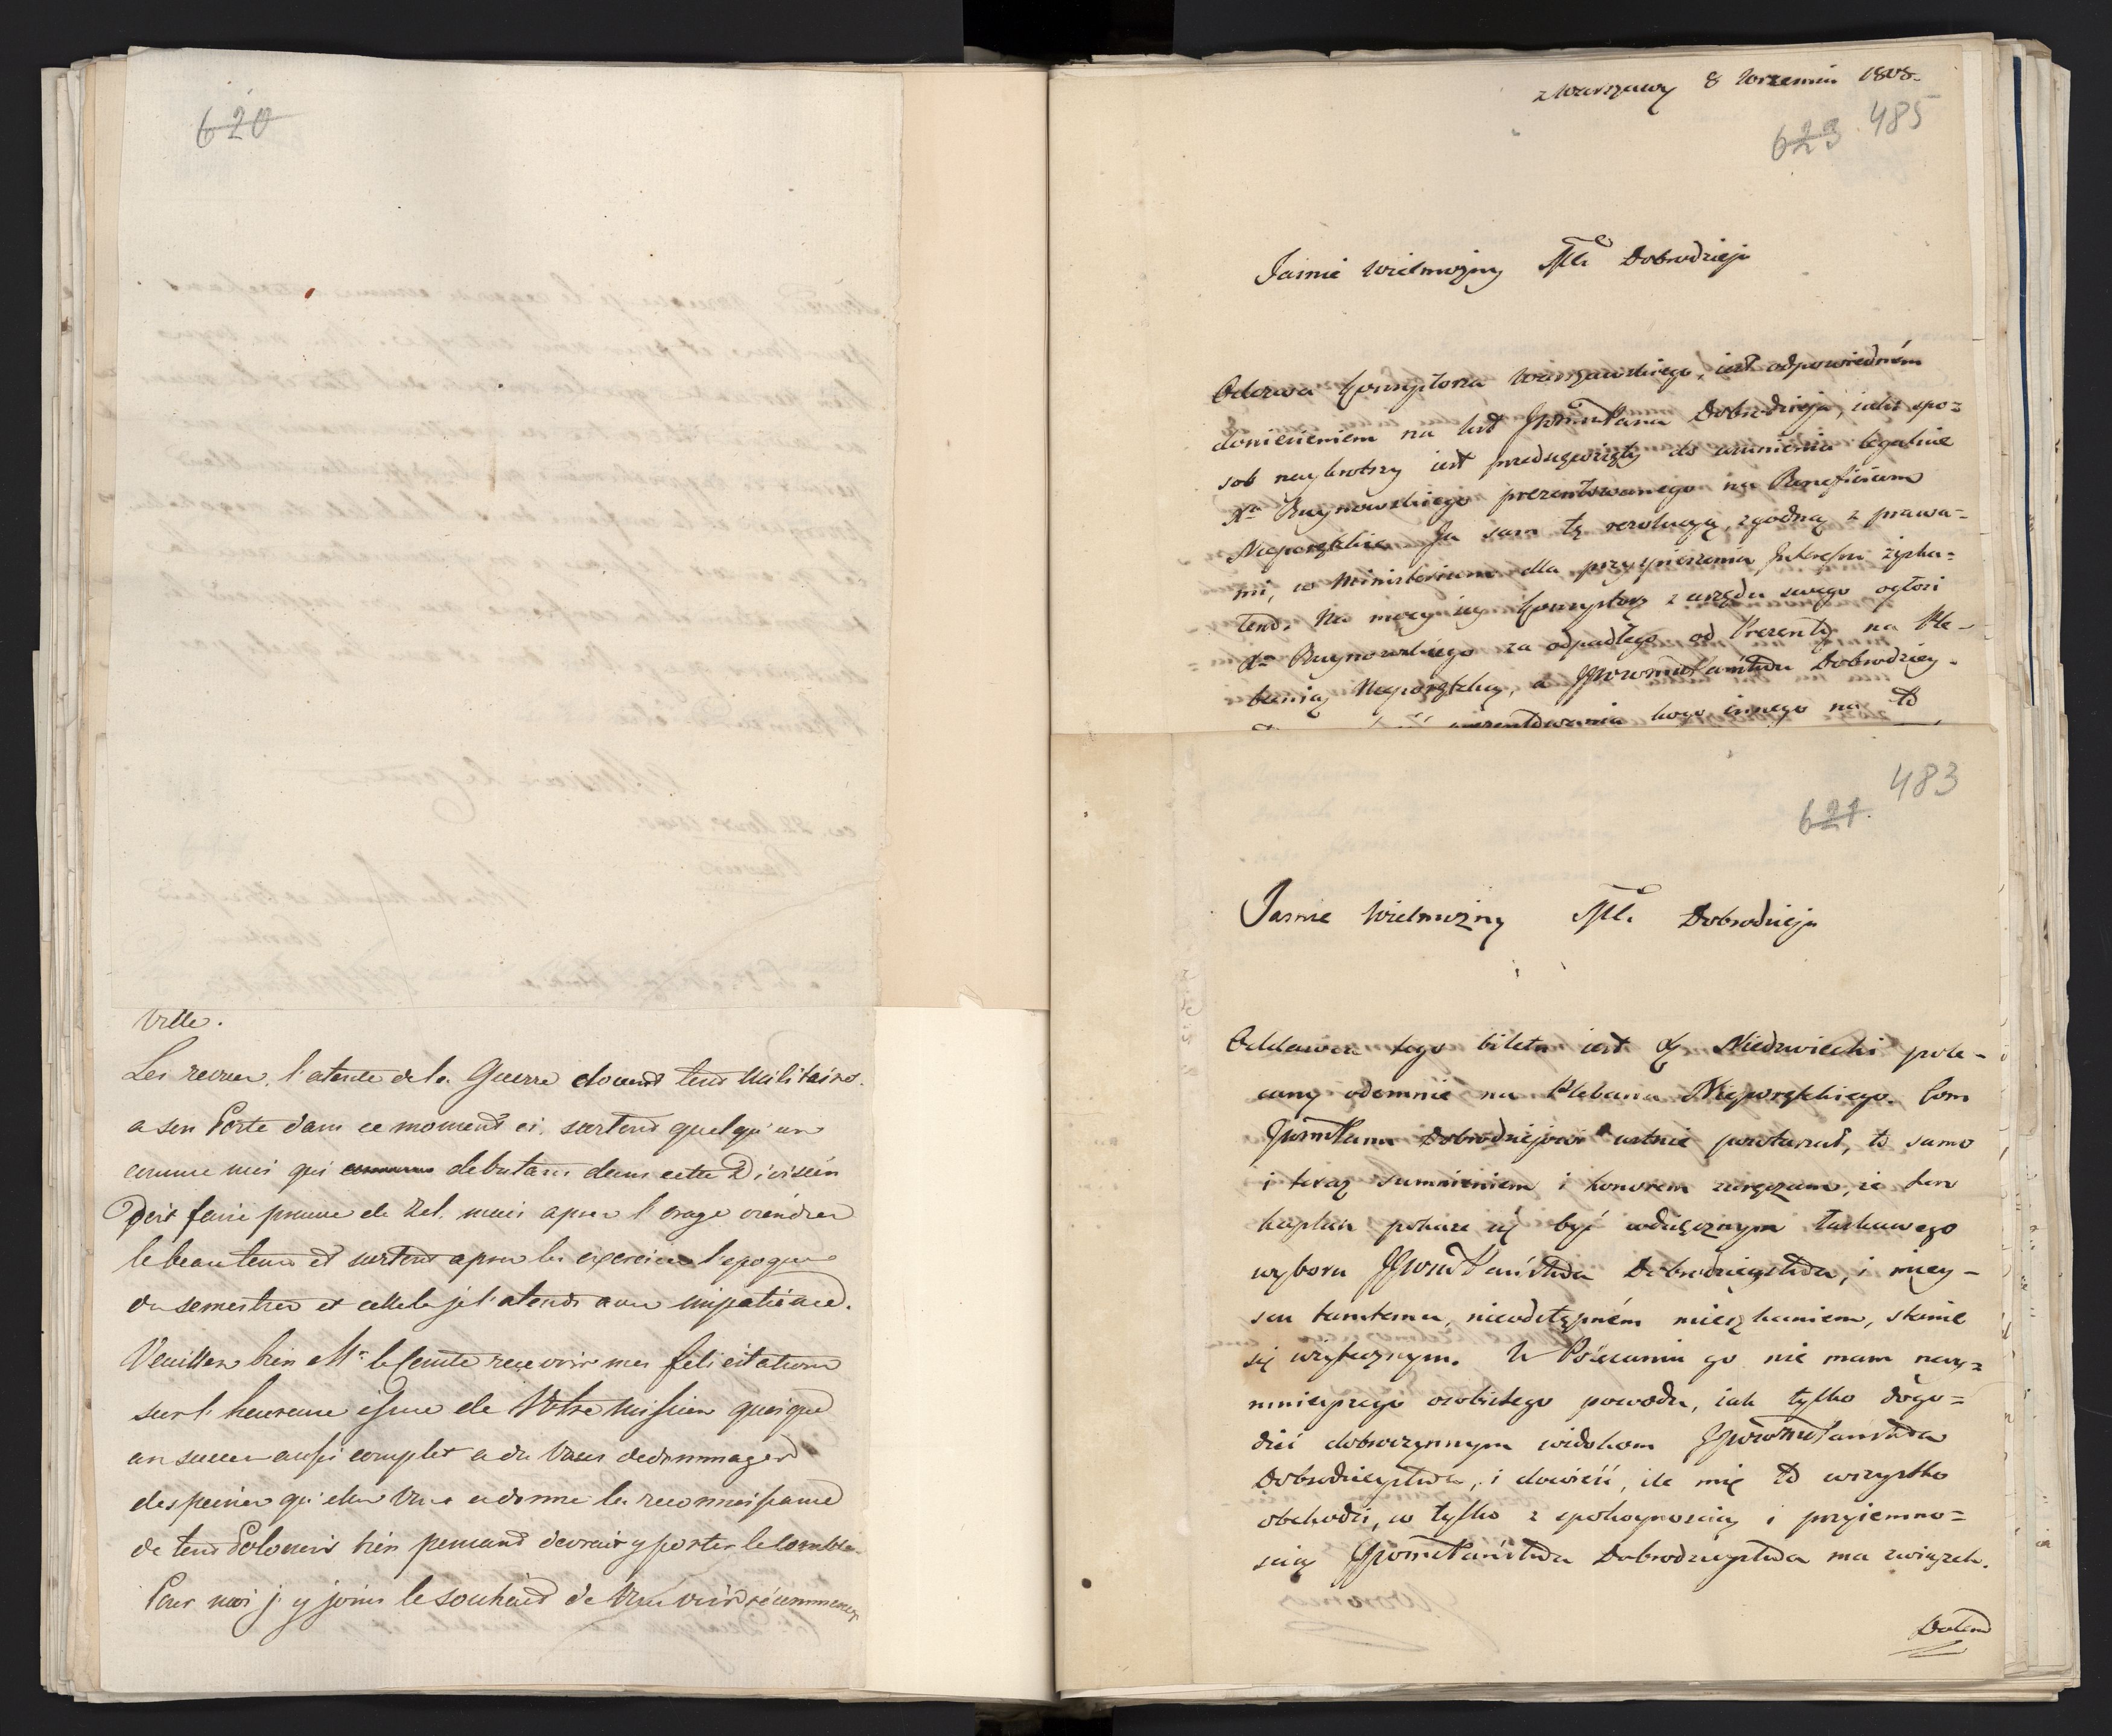 620
Ville.
Les revues, l'atente de la Guerre clouent tout Militaire
a son Poste dans ce moment ci, surtout quelqu'un
comme moi qui debutant dans cette Division
doit faire preuve de Zel. mais apres l'orage viendra
le beau tems et surtout apres les exercices l'epoque
de semestres et celle la je l'atends avec impatience.
Veuillez bien Mr le Comte recevoir mes felicitations
sur l'heureuse issue de Votre Mission quoique
un succes aussi complet a du Vous dedommager
des peines qu'elle Vous a donné la reconnaissance
de tout Polonais bien pensant devrait y porter le comble.
Pour moi j'y joins le souhait de Vous voir
z Warszawy 8 Wrzesnia 1808.
623 485
Jasnie Wielmożny Mci Dobrodzieju
Odezwa Konsystorza Warszawskiego, iest odpowiedném
doniesieniem na list JWWPana Dobrodzieja, iaki spo=
sob naykrotszy iest przedsięwzięty do usunienia legalnie
Xa Buynowskiego prezentowanego na Beneficium
Nieporęckie. Ja sam tę rezolucyą, zgodną z prawa=
mi, w Ministerium dla przyspieszenia Interessu zyska=
łem. Na mocy iey Konsystorz z urzędu swego ogłosi
Xa Buynowskiego za odpadłego od Prezenty na Ple-
banią Nieporęcką, a JJWWPaństwu Dobrodziey-
prezentowania kogo innego na to
483
621.
Jasnie Wielmożny Mci Dobrodzieju
Oddawca tego biletu iest X Niedzwiecki pole-
cany odemnie na Plebana Nieporęckiego. Com
JWMPanu Dobrodziejowi ustnie powtarzał, to samo
i teraz sumnieniem i honorem zaręczam, że ten
kapłan pokaże się być wdzięcznym łaskawego
wyboru JJWWPaństwa Dobrodzieystwa, i miey-
scu tamtemu, nieodstępném mieszkaniem, stanie
się użytecznym. W Polecaniu go nie mam nay=
mnieyszego osobistego powodu, iak tylko dogo=
dzić dobroczynnym widokom JJWWPaństwa
Dobrodzieystwa, i dowieść, ile mię to wszystko
obchodzi, co tylko z spokoynością i przyiemno=
scią JJWWPaństwa Dobrodzieystwa ma związek.